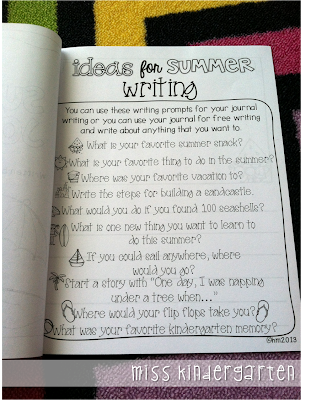 ideas for SUMMER
writing
You can use these writing prompts for your journal
writing or you can use your journal for free writing
and write about anything that you want to.
What is your favorite summer snack?
What is your favorite thing to do in the summer?
Where was your favorite vacation to?
Write the steps for building a sandcastle.
What would you do if you found 100 seashells?
What is one new thing you want to learn to
do this summer?
If you could sail anywhere, where
would you go?
Start a story with "One day, I was napping
under a tree when..."
Where would your flip flops take you?
What was your favorite kindergarten memory?
©hm2013
miss kindergarten